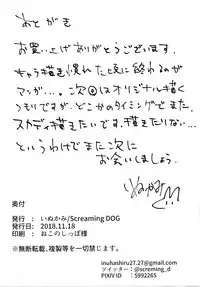 あとがき
お買い上げありがとうございます。
キャラ描き慣れた頃に終わるのが
マンガ…。次回はオリジナル描く
つもりですが、どこかのタイミングでまた、
スカディ描きたいです。描きたりない…。
というわけでまた次に
お会いしましょう。
いぬかみ
奥付
発行：いぬかみ/Screaming DOG
発行日：2018.11.18
印刷：ねこのしっぽ様
※無断転載、複製等を一切禁じます。
inuhashiru27.27@gmail.com
ツイッター：@screming_d
PIXIV ID：5992265